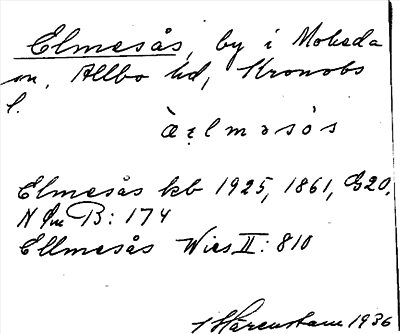 Elmesås, by i Moheda
sn. Allbo hd, Kronobs
l.
Elmesås kb 1925, 1861, G20,
N B: 174
Ellmesås Wies II: 810
Härenstam 1936